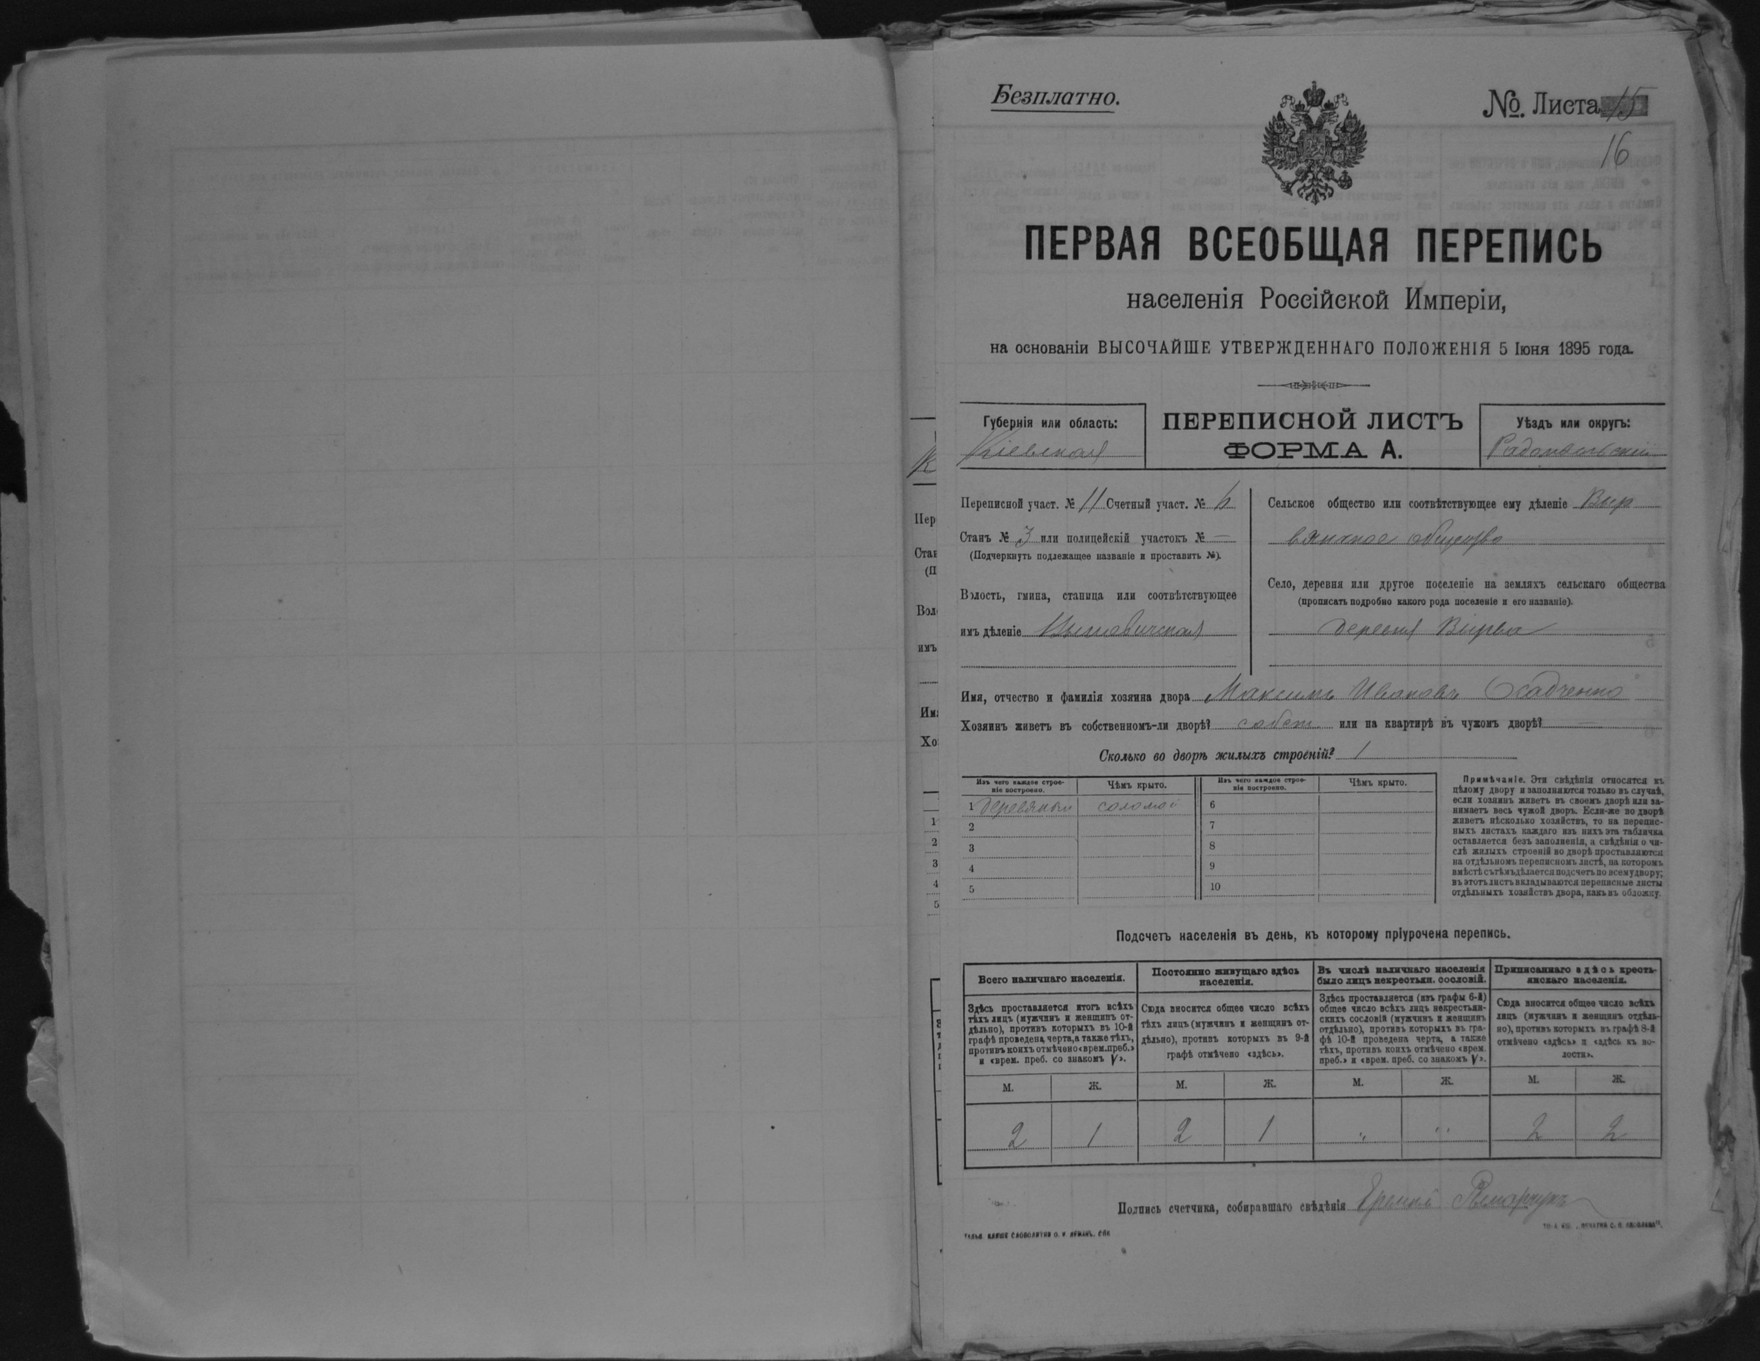 Безплатно.
№. Листа 15
16
ПЕРВАЯ ВСЕОБЩАЯ ПЕРЕПИСЬ
населенія Россійской Имперіи,
на основаніи ВЫСОЧАЙШЕ УТВЕРЖДЕННАГО ПОЛОЖЕНІЯ 5 Іюня 1895 года.
Губернія или область:
Кіевская
ПЕРЕПИСНОЙ ЛИСТЪ
ФОРМА А.
Уѣздъ или округъ:
Радомысльскій
Переписной участ. № 11 Счетный участ. №
Станъ № 3 или полицейскій участокъ № —
(Подчеркнуть подлежащее названіе и проставить №).
Волость, гмина, станица или соотвѣтствующее
имъ дѣленіе
Сельское общество или соотвѣтствующее ему дѣленіе Выр
вянское общество
Село, деревня или другое поселеніе на земляхъ сельскаго общества
(прописать подробно какого рода поселеніе и его названіе).
деревня Вырва
Имя, отчество и фамилія хозяина двора Максимъ Ивановъ Осадченко
Хозяинъ живетъ въ собственномъ-ли дворѣ? собст или на квартирѣ въ чужомъ дворѣ? —
Сколько во дворѣ жилыхъ строеній? 1
Изъ чего каждое строе-
ніе построено.
Чѣмъ крыто.
Изъ чего каждое строе-
ніе построено.
Чѣмъ крыто.
1 деревяный соломой 6
2 7
3 8
4 9
5 10
Примѣчаніе. Эти свѣдѣнія относятся къ
цѣлому двору и заполняются только въ случаѣ,
если хозяинъ живетъ въ своемъ дворѣ или за-
нимаетъ весь чужой дворъ. Если-же во дворѣ
живетъ нѣсколько хозяйствъ, то на перепис-
ныхъ листахъ каждаго изъ нихъ эта табличка
оставляется безъ заполненія, а свѣдѣнія о чи-
слѣ жилыхъ строеній во дворѣ проставляются
на отдѣльномъ переписномъ листѣ, на которомъ
вмѣстѣ съ тѣмъ дѣлается подсчетъ по всему двору;
въ этотъ листъ вкладываются переписные листы
отдѣльныхъ хозяйствъ двора, какъ въ обложку.
Подсчетъ населенія въ день, къ которому пріурочена перепись.
Всего наличнаго населенія.
Здѣсь проставляется итогъ всѣхъ
тѣхъ лицъ (мужчинъ и женщинъ от-
дѣльно), противъ которыхъ въ 10-й
графѣ проведена черта, а также тѣхъ,
противъ коихъ отмѣчено «врем. преб.»
и «врем. преб. со знакомъ V».
Постоянно живущаго здѣсь
населенія.
Сюда вносится общее число всѣхъ
тѣхъ лицъ (мужчинъ и женщинъ от-
дѣльно), противъ которыхъ въ 9-й
графѣ отмѣчено «здѣсь».
Въ числѣ наличнаго населенія
было лицъ некрестьян. сословій.
Здѣсь проставляется (изъ графы 6-й)
общее число всѣхъ лицъ некрестьян-
скихъ сословій (мужчинъ и женщинъ
отдѣльно), противъ которыхъ въ гра-
фѣ 10-й проведена черта, а также
тѣхъ, противъ коихъ отмѣчено «врем.
преб.» и «врем. преб. со знакомъ V».
Приписаннаго здѣсь кресть-
янскаго населенія.
Сюда вносится общее число всѣхъ
лицъ (мужчинъ и женщинъ отдѣль-
но), противъ которыхъ въ графѣ 8-й
отмѣчено «здѣсь» и «здѣсь въ во-
лости».
М. Ж. М. Ж. М. Ж. М. Ж.
2 1 2 1 " " 2 2
Подпись счетчика, собиравшаго свѣдѣнія